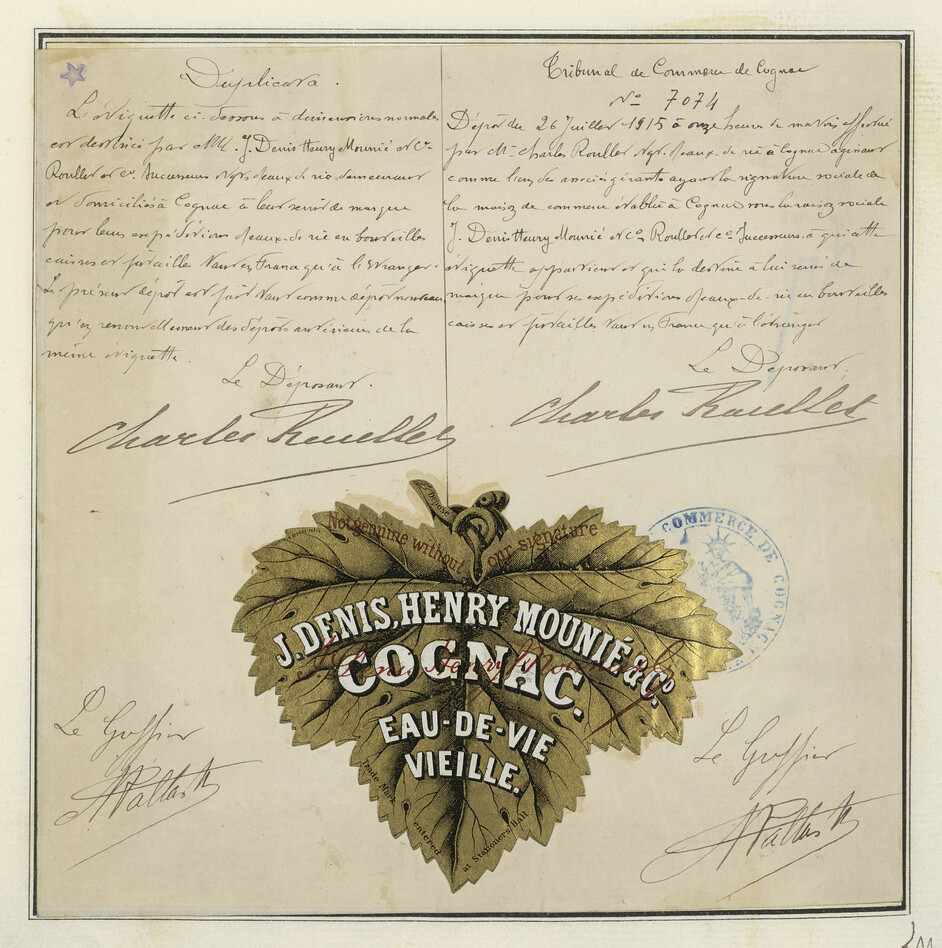 Duplicata.
L'étiquette ci-dessous à dimensions normales
est destinée par MM. J. Denis Henry Mounié et Co
Roullet et Co. Successeurs Négts d'eaux-de-vie demeurant
et domiciliés à Cognac à leur servir de marque
pour leurs expéditions d'eaux-de-vie en bouteilles
caisses et futailles tant en France qu'à l'Etranger.
Le présent dépôt est fait tant comme dépôt nouveau
qu'en renouvellement des dépôts antérieurs de la
même étiquette.
Le Déposant.
Charles Roullet
Tribunal de Commerce de Cognac
No 7074
Dépôt du 26 Juillet 1915 à onze heures du matin effectué
par Mr Charles Roullet Négt d'eaux-de-vie à Cognac agissant
comme l'un des associés gérants ayant la signature sociale de
la maison de commerce établie à Cognac sous la raison sociale
J. Denis Henry Mounié et Co, Roullet et Co Successeurs à qui cette
étiquette appartient et qui la destine à lui servir de
marque pour ses expéditions d'eaux-de-vie en bouteilles
caisses et futailles tant en France qu'à l'étranger
Le Déposant.
Charles Roullet
Déposé
Not genuine without our signature
J. DENIS, HENRY MOUNIÉ & Co.
COGNAC.
J. Denis Henry Mounié & Co
EAU-DE-VIE
VIEILLE.
Trade Mark
entered
at Stationers Hall
COMMERCE DE COGNAC
Le Greffier
Le Greffier